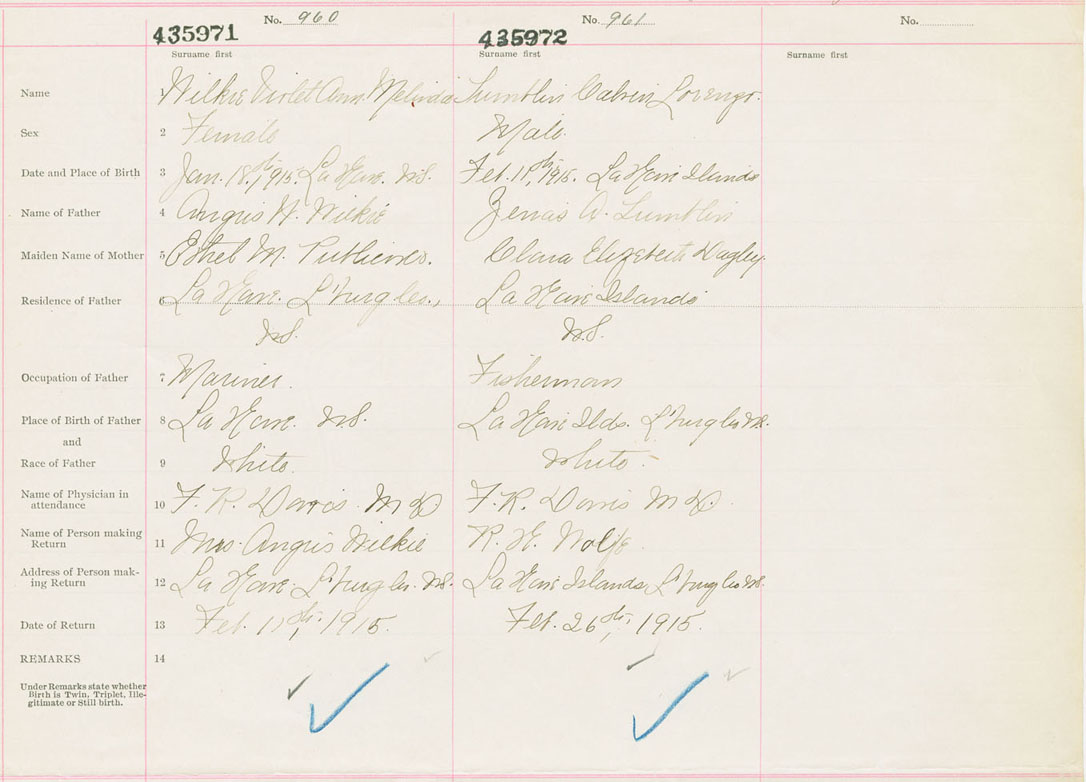 No. 960
No. 961
No.
435971
435972
Surname first
Surname first
Surname first
Name 1 Wilkie Violet Ann Melinda Lumblin Calvin Lorenzo.
Sex 2 Female Male.
Date and Place of Birth 3 Jan. 18th, 1915. La Have. N.S. Feb. 11th, 1915. La Have Islands
Name of Father 4 Angus W. Wilkie Zenas A. Lumblin
Maiden Name of Mother 5 Ethel M. Clara Elizabeth
Residence of Father 6 La Have. La Have Islands
N.S. N.S.
Occupation of Father 7 Mariner. Fisherman
Place of Birth of Father 8 La Have. N.S. La Have Ilds.
and
Race of Father 9 White. White.
Name of Physician in
attendance 10 F. R. Davis M D F. R. Davis M D.
Name of Person making
Return 11 Mrs. Angus Wilkie R. H. Wolfe
Address of Person mak-
ing Return 12 La Have. N.S. La Have Islands,
Date of Return 13 Feb. 11th, 1915. Feb. 26th, 1915.
REMARKS 14
Under Remarks state whether
Birth is Twin, Triplet, Ille-
gitimate or Still birth.